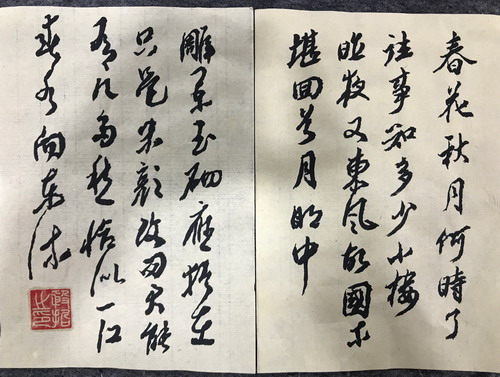 春花秋月何時了
往事知多少小樓
昨夜又東風故國不
堪回首月明中
雕闌玉砌應猶在
只是朱顏改問君能
有几多愁恰似一江
春水向東流